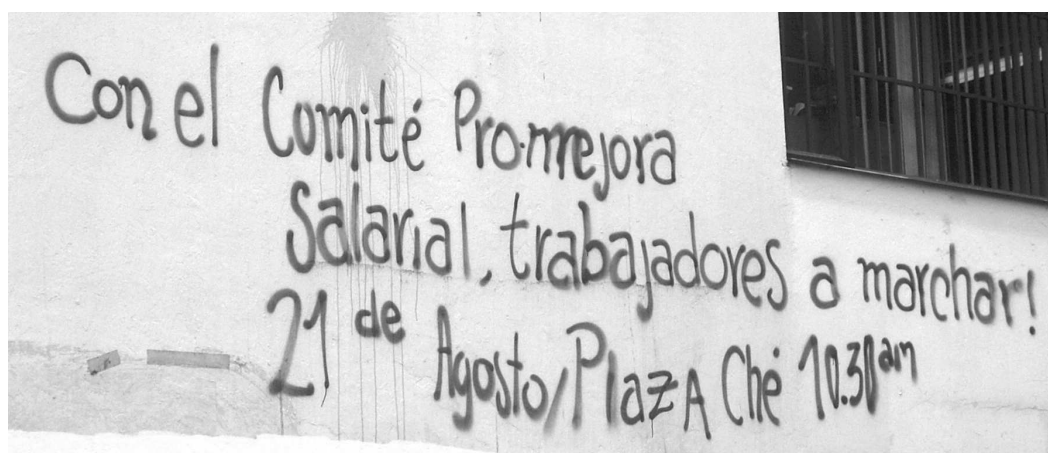 Con el Comité Pro-mejora
Salarial, trabajadores a marchar!
21 de Agosto/Plaza Ché 10.30am